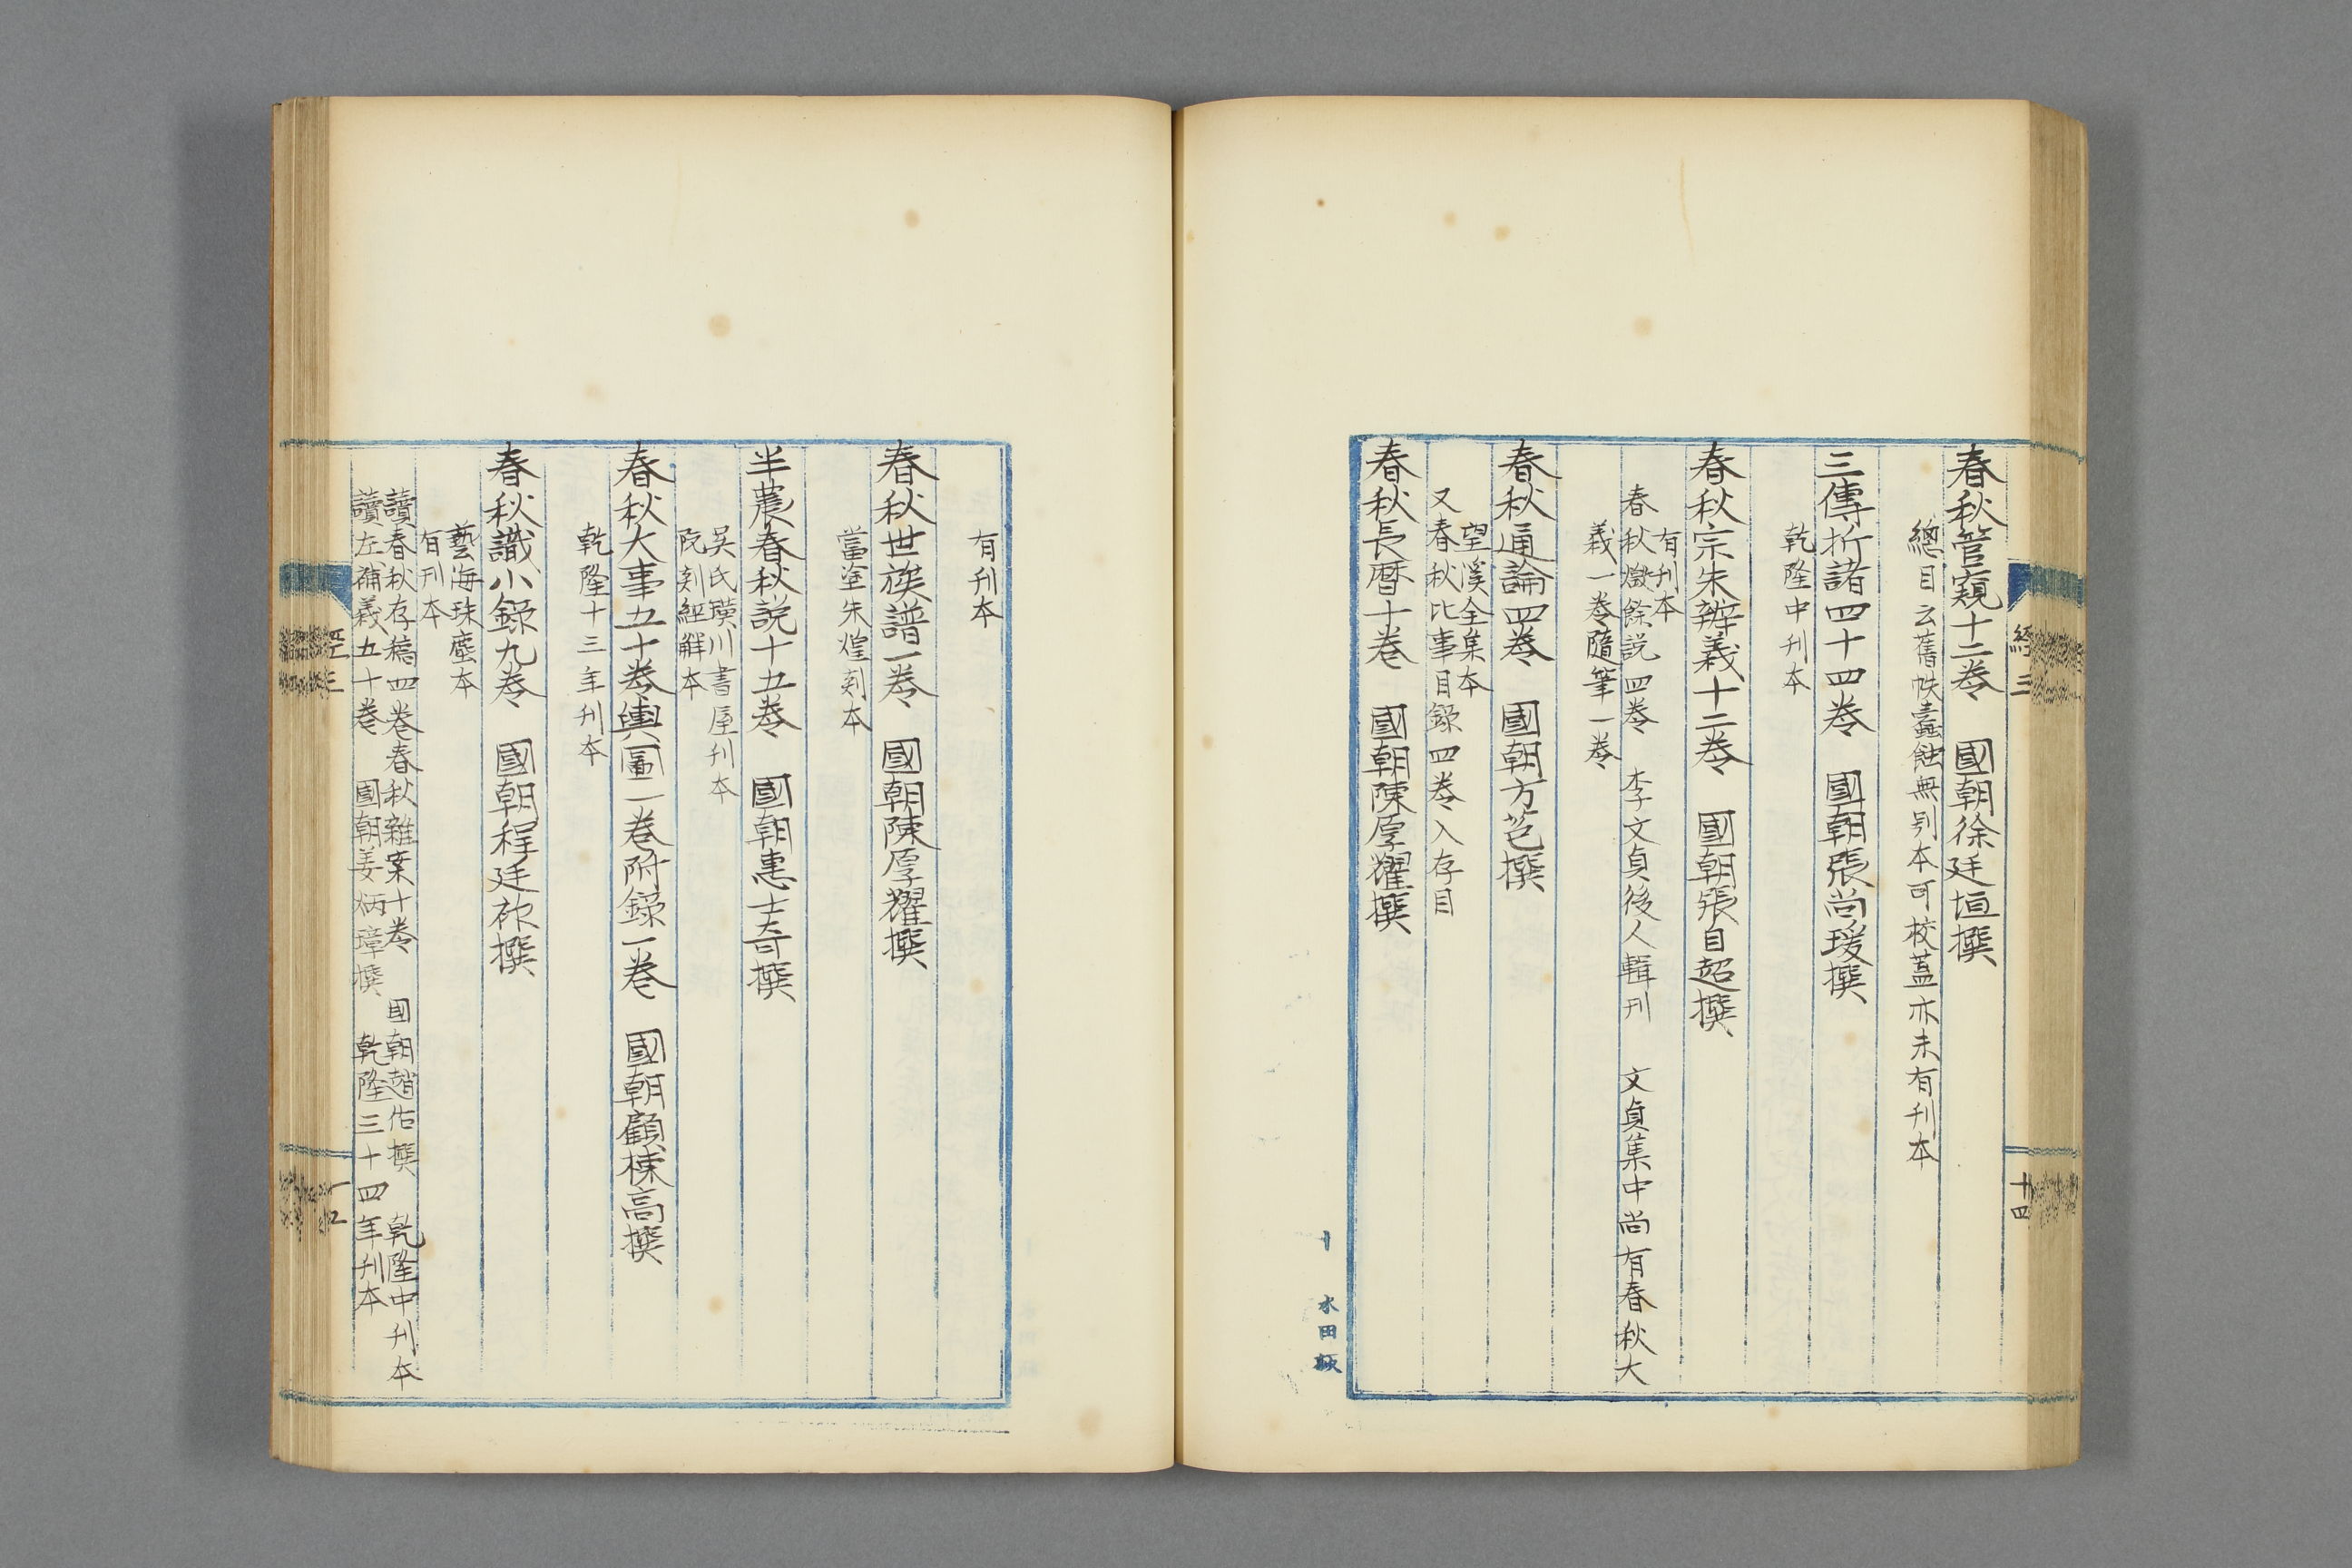 春秋管窺十二卷　國朝徐廷垣撰
總目云舊帙蠹蝕無別本可校蓋亦未有刊本
三傳折諸四十四卷　國朝張尚瑗撰
乾隆中刊本
春秋宗朱辨義十二卷　國朝張自超撰
有刊本
春秋燬餘説四卷　李文貞後人輯刊　文貞集中尚有春秋大
義一卷隨筆一卷
春秋通論四卷　國朝方苞撰
望溪全集本
又春秋比事目録四卷入存目
春秋長曆十卷　國朝陳厚耀撰
經三
十四
有刊本
春秋世族譜一卷　國朝陳厚耀撰
當塗朱煌刻本
半農春秋説十五卷　國朝惠士奇撰
吴氏璜川書屋刊本
阮刻經解本
春秋大事五十卷輿圖一卷附錄一卷　國朝顧棟高撰
乾隆十三年刊本
春秋識小錄九卷　國朝程廷祚撰
藝海珠塵本
有刊本
讀春秋存稿四卷春秋雜案十卷　國朝趙佑撰　乾隆中刊本
讀左補義五十卷　國朝姜炳璋撰　乾隆三十四年刊本